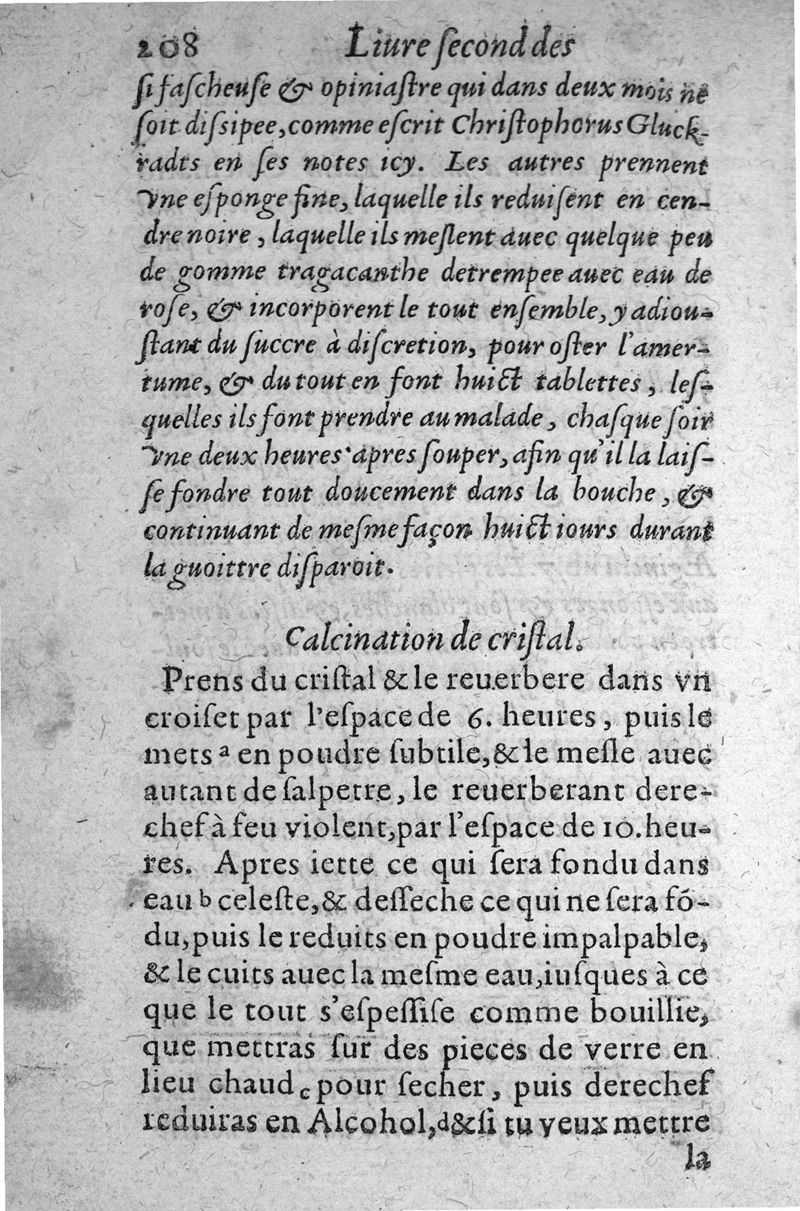 208 Liure ſecond des
ſi faſcheuſe & opiniaſtre qui dans deux mois ne
ſoit diſsipee, comme eſcrit Chriſtophorus Gluck-
radts en ſes notes icy. Les autres prennent
vne eſponge fine, laquelle ils reduiſent en cen-
dre noire, laquelle ils meſlent auec quelque peu
de gomme tragacanthe detrempee auec eau de
roſe, & incorporent le tout enſemble, y adiou-
ſtant du ſuccre à diſcretion, pour oſter l'amer-
tume, & du tout en font huict tablettes, leſ-
quelles ils font prendre au malade, chaſque ſoir
vne deux heures apres ſouper, afin qu'il la laiſ-
ſe fondre tout doucement dans la bouche, &
continuant de meſme façon huict iours durant
la guoittre diſparoit.
Calcination de criſtal.
Prens du criſtal & le reuerbere dans vn
croiſet par l'eſpace de 6. heures, puis le
mets a en poudre ſubtile, & le meſle auec
autant de ſalpetre, le reuerberant dere-
chef à feu violent, par l'eſpace de 10. heu-
res. Apres iette ce qui ſera fondu dans
eau b celeſte, & deſſeche ce qui ne ſera fõ-
du, puis le reduits en poudre impalpable,
& le cuits auec la meſme eau, iuſques à ce
que le tout s'eſpeſſiſe comme bouillie,
que mettras ſur des pieces de verre en
lieu chaud c pour ſecher, puis derechef
reduiras en Alcohol, d & ſi tu veux mettre
la